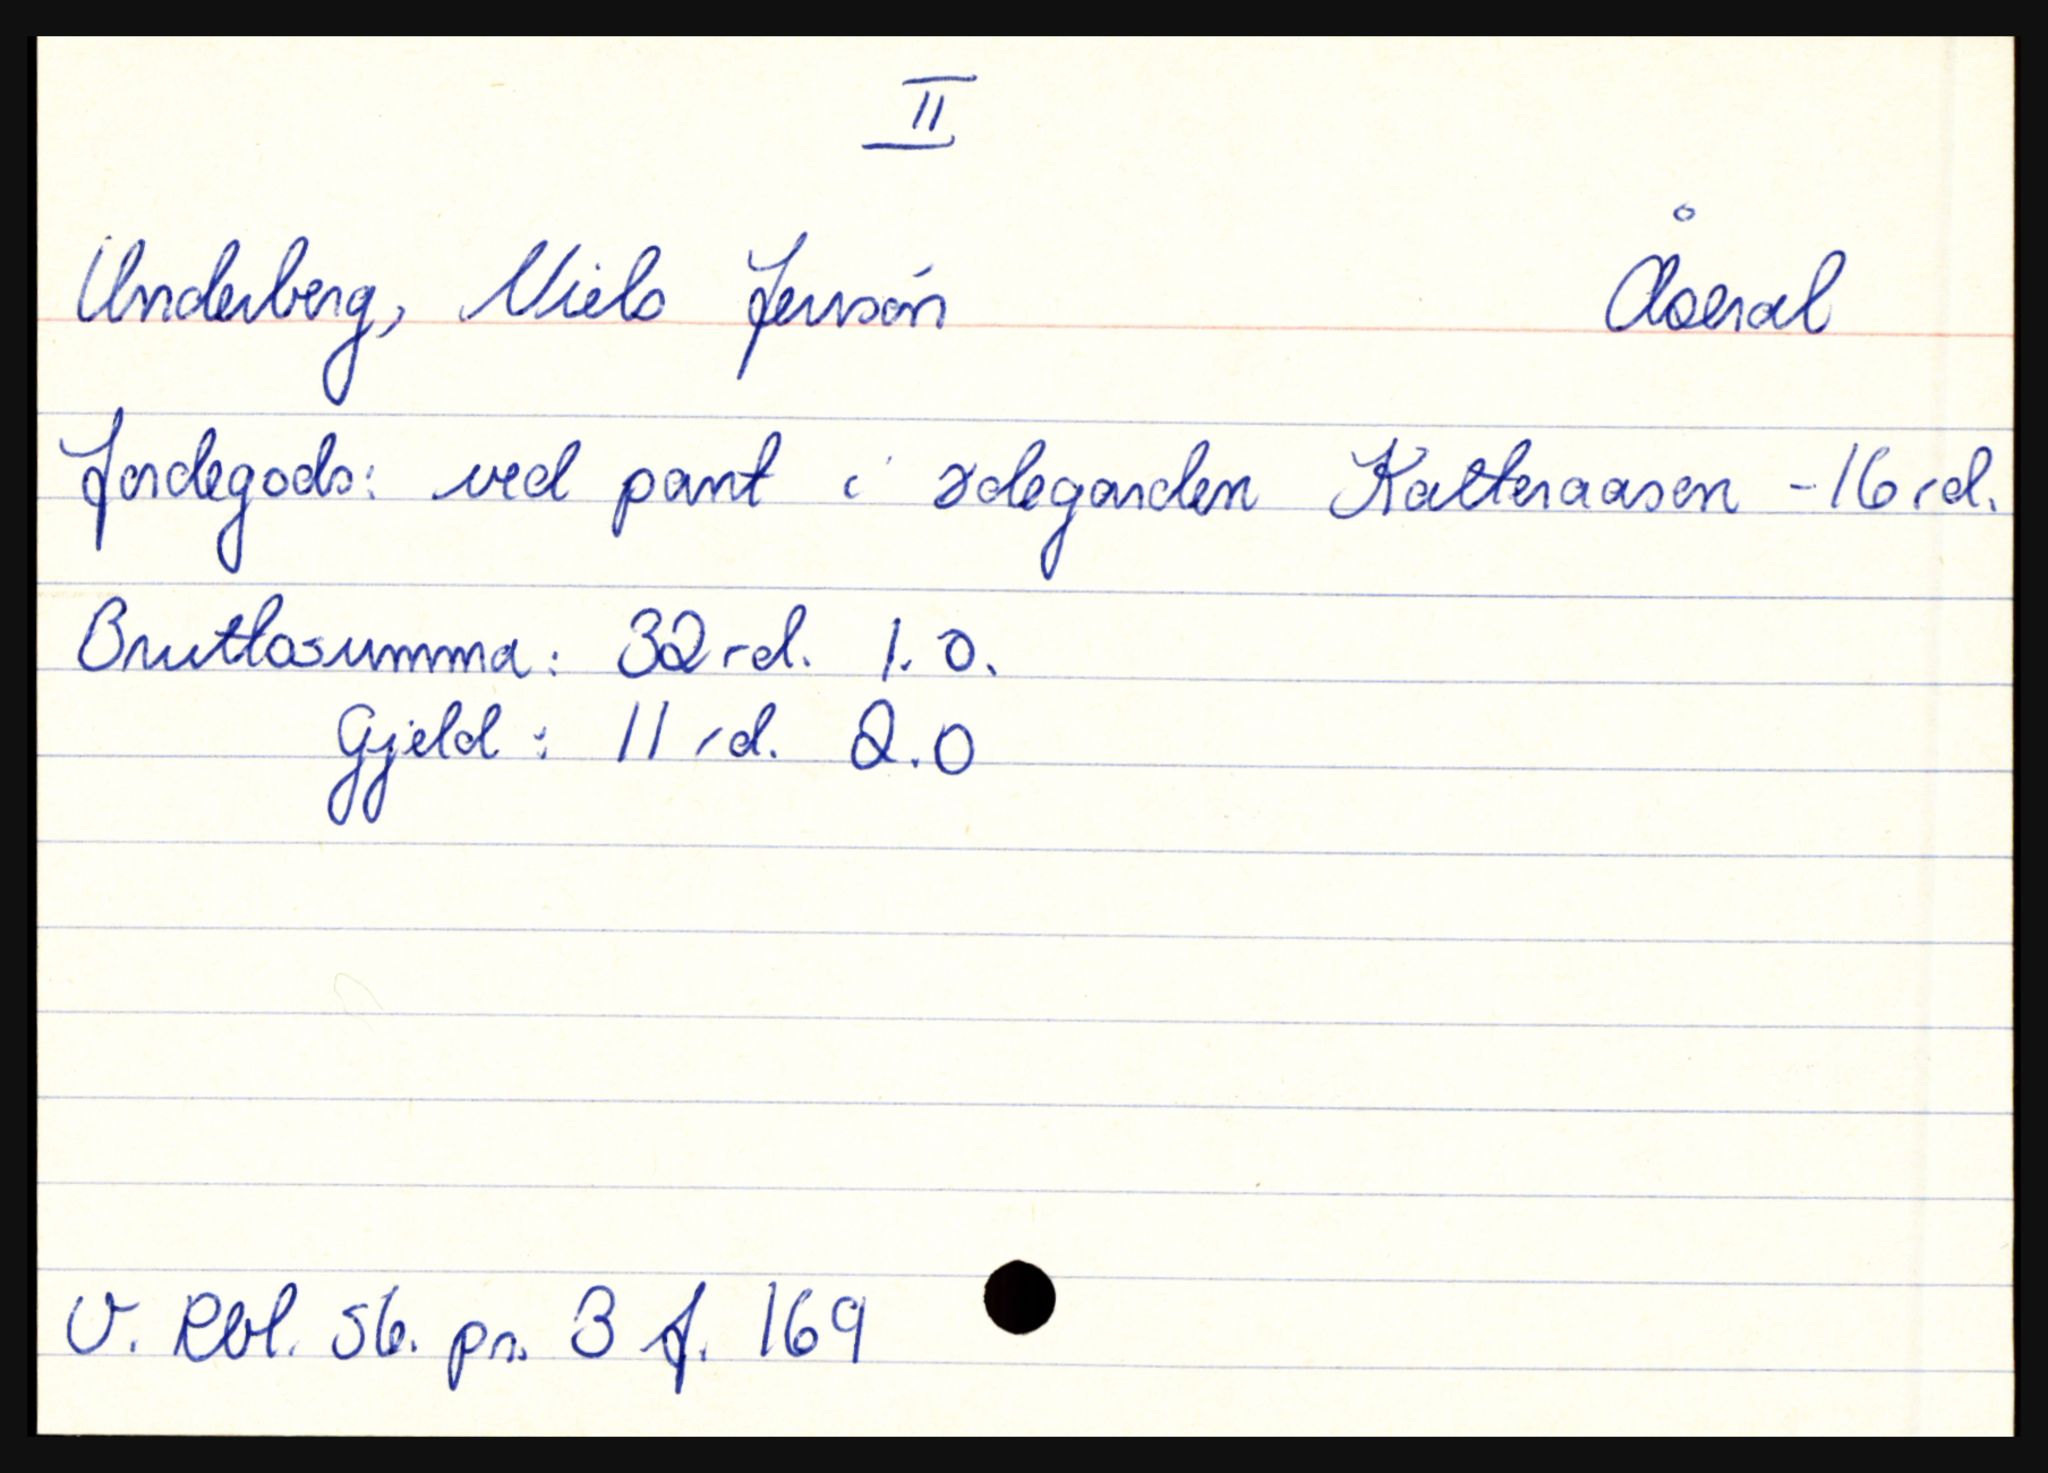 II
Underberg, Niels Jensøn Åseral
Jordegods: ved pant i ødegarden Katteraasen - 16 rd.
Bruttosumma: 32 rd. 1. 0.
Gjeld: 11 rd. 2.0
V. Rbl. Sk. pr. 3 f. 169